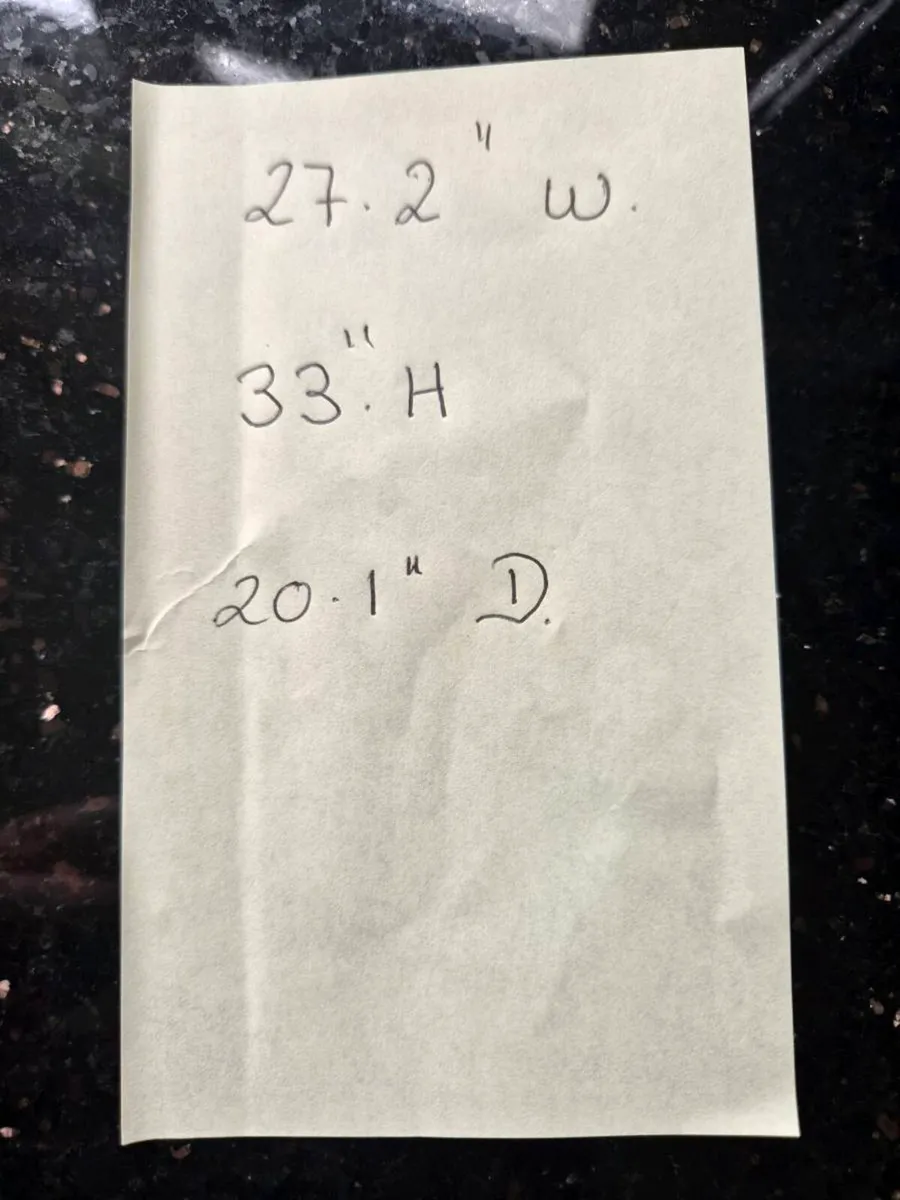 27.2" W.
33". H
20.1" D.